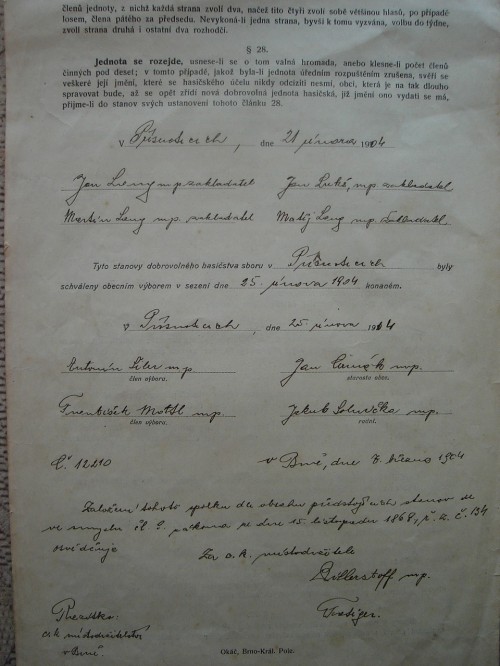 členů jednoty, z nichž každá strana zvolí dva, načež tito čtyři zvolí sobě většinou hlasů, po případě
losem, člena pátého za předsedu. Nevykoná-li jedna strana, byvši k tomu vyzvána, volbu do týdne,
zvolí strana druhá i ostatní dva rozhodčí.
§ 28.
Jednota se rozejde, usnese-li se o tom valná hromada, anebo klesne-li počet členů
činných pod deset; v tomto případě, jakož byla-li jednota úředním rozpuštěním zrušena, svěří se
veškeré její jmění, které se hasičského účelu nikdy odciziti nesmí, obci, která je na tak dlouho
spravovat bude, až se opět zřídí nová dobrovolná jednota hasičská, jíž jmění ono vydati se má,
přijme-li do stanov svých ustanovení tohoto článku 28.
V Písnotcech, dne 21 února 1904
Jan mp. zakladatel Jan Lukš, mp. zakladatel
Martin mp. zakladatel Matěj mp. zakladatel
Tyto stanovy dobrovolného hasičstva sboru v byly
schváleny obecním výborem v sezení dne 25. února 1904 konaném.
v dne 25 února 1904
Antonín mp. Jan mp.
člen výboru. starosta obce.
František mp. Jakub mp.
člen výboru. radní.
Č. 12210 v Brně, dne 7. března 1904
Založení tohoto spolku dle obsahu předstojících stanov se
ve smyslu čl. 9. zákona ze dne 15. listopadu 1867, ř. z. č. 134
osvědčuje
Za c. k. místodržitele
mp.
c.k. místodržitelství
v Brně.
Okáč, Brno-Král. Pole.